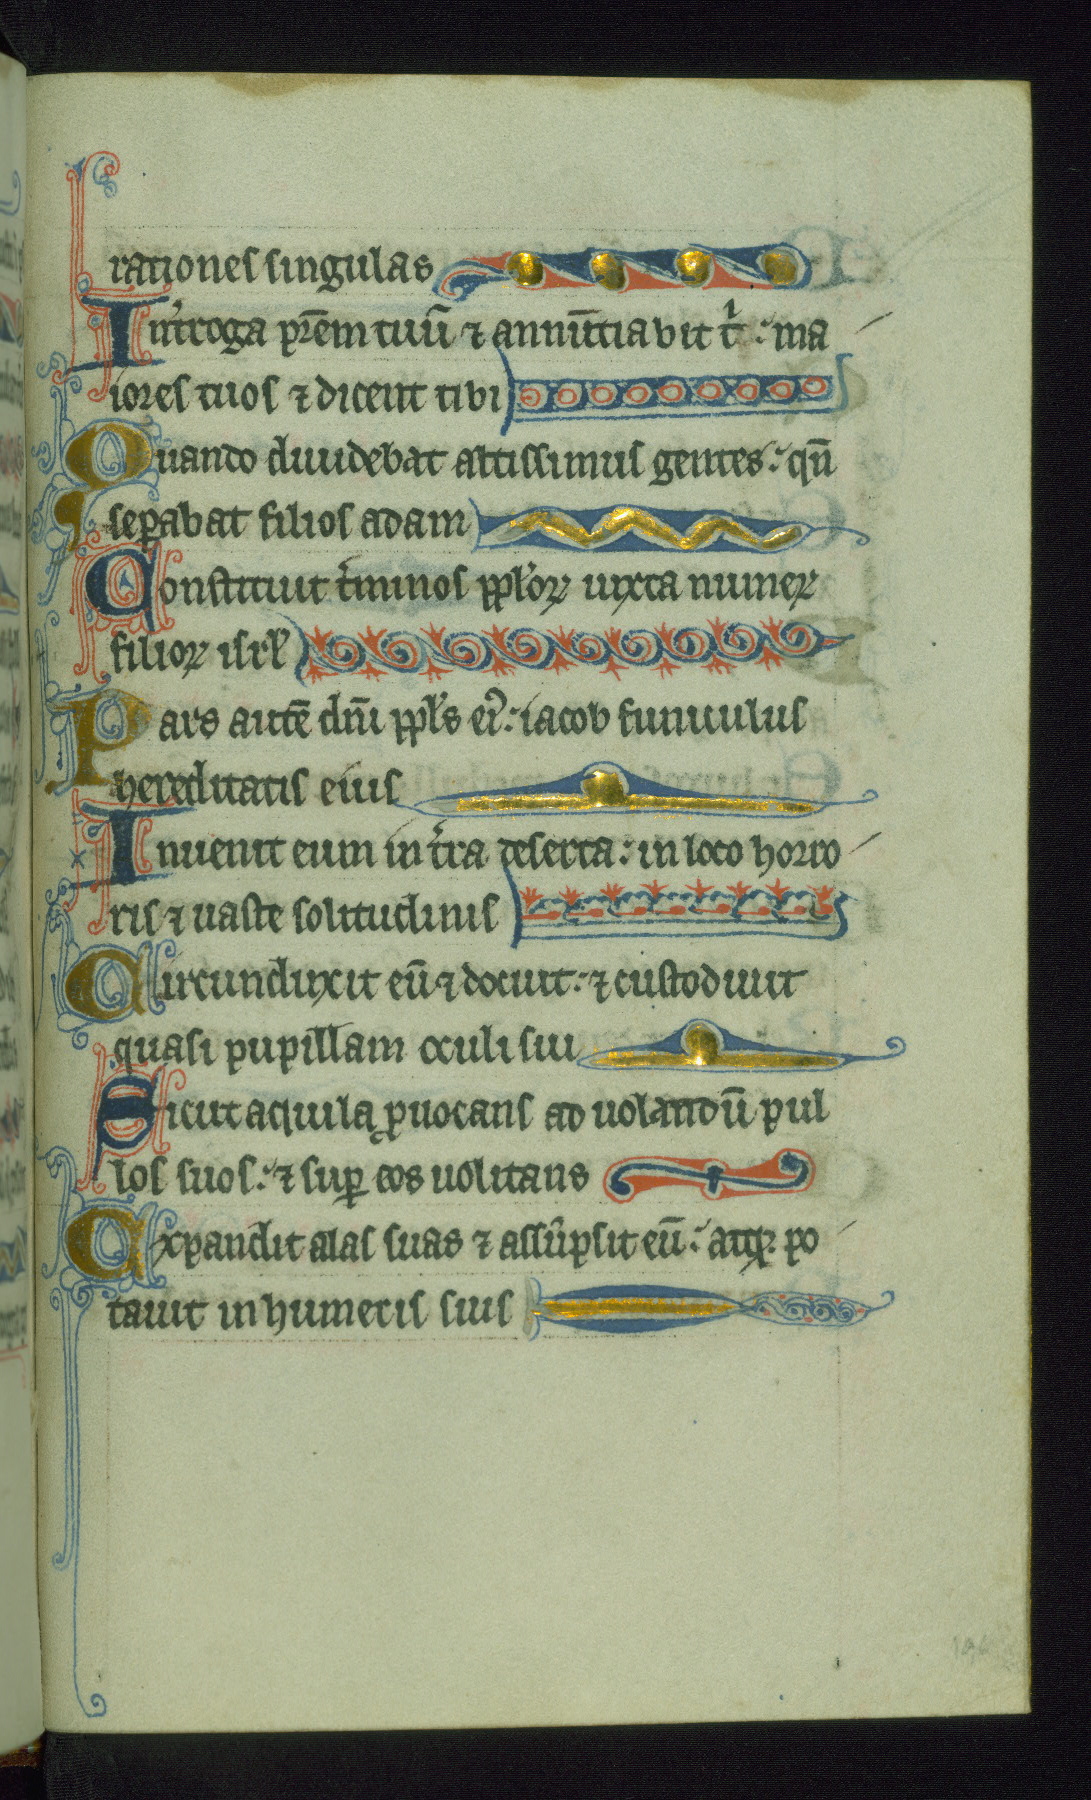 rationes singulas
Int͛roga pr̄em tuū ⁊ annūtiabit t͛ : ma
iores tuos ⁊ dicent tibi
Quando diuidebat altissimus gentes : qn̄
sep̱abat filios adam
Constituit t͛minos pp̄loꝝ iuxta numeꝝ
filioꝝ isrl̄
Pars autē dn̄i pp̄ls ei᷒ : iacob funiculus
hereditatis eius
Inuenit eum in t͛ra deserta : in loco horro
ris ⁊ uaste solitudinis
Circunduxit eū ⁊ docuit : ⁊ custodiuit
quasi pupillam oculi sui
Sicut aquila ꝓuocans ad uolandū pul
los suos : ⁊ suꝑ eos uolitans
Expandit alas suas ⁊ assūpsit eū : atqꝫ po
tauit in humeris suis
196